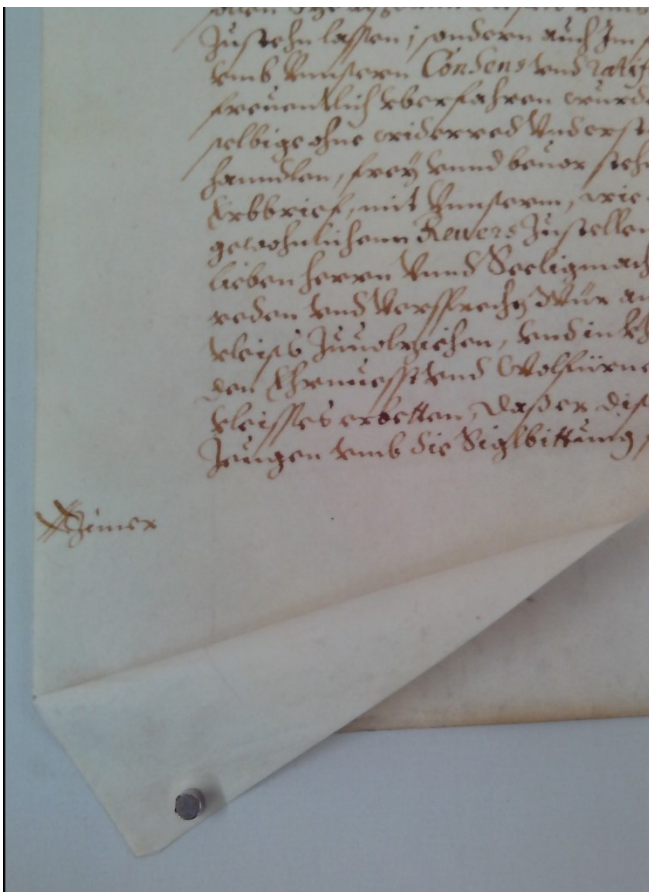 Zustehn lassen; sondern auch Im
vmb Vnnsern Consens vnd ratif
freuentlich vberfahren wurde
selbige ohne widerred Vnderst
hanndlen, frey vnnd beuor steh
Erbbrief, mit Vnnserm, wie
gewohnlichenn Reuers Zustellen
lieben herrn Vnnd Seeligmach
reden vnd Versprechen Wür an
vleiss Zuuolziehen, vnd in
den Ehrnuesst vnd Wolfürne
vleisses erbetten, Das er dis
Zeugen vmb die Siglbittung,